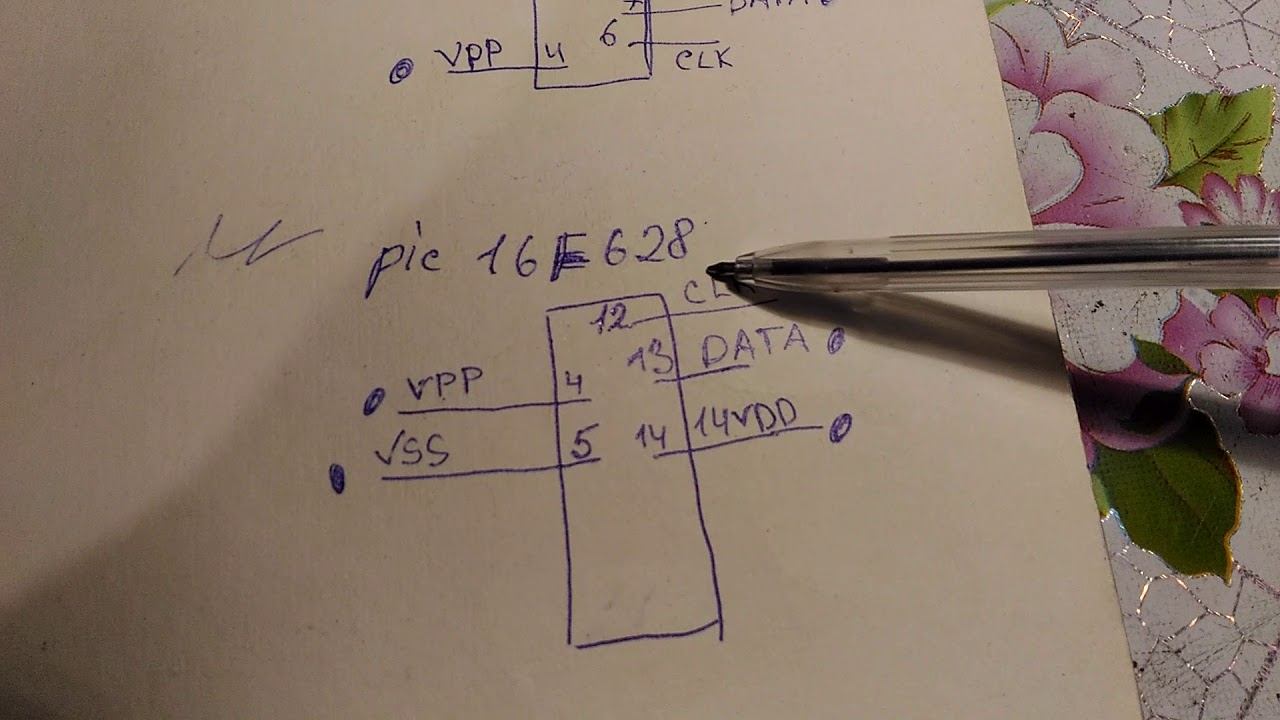 7 DATA
6
VPP 4
CLK
pic 16F628
12 CLK
13 DATA
VPP 4
14 14VDD
VSS 5